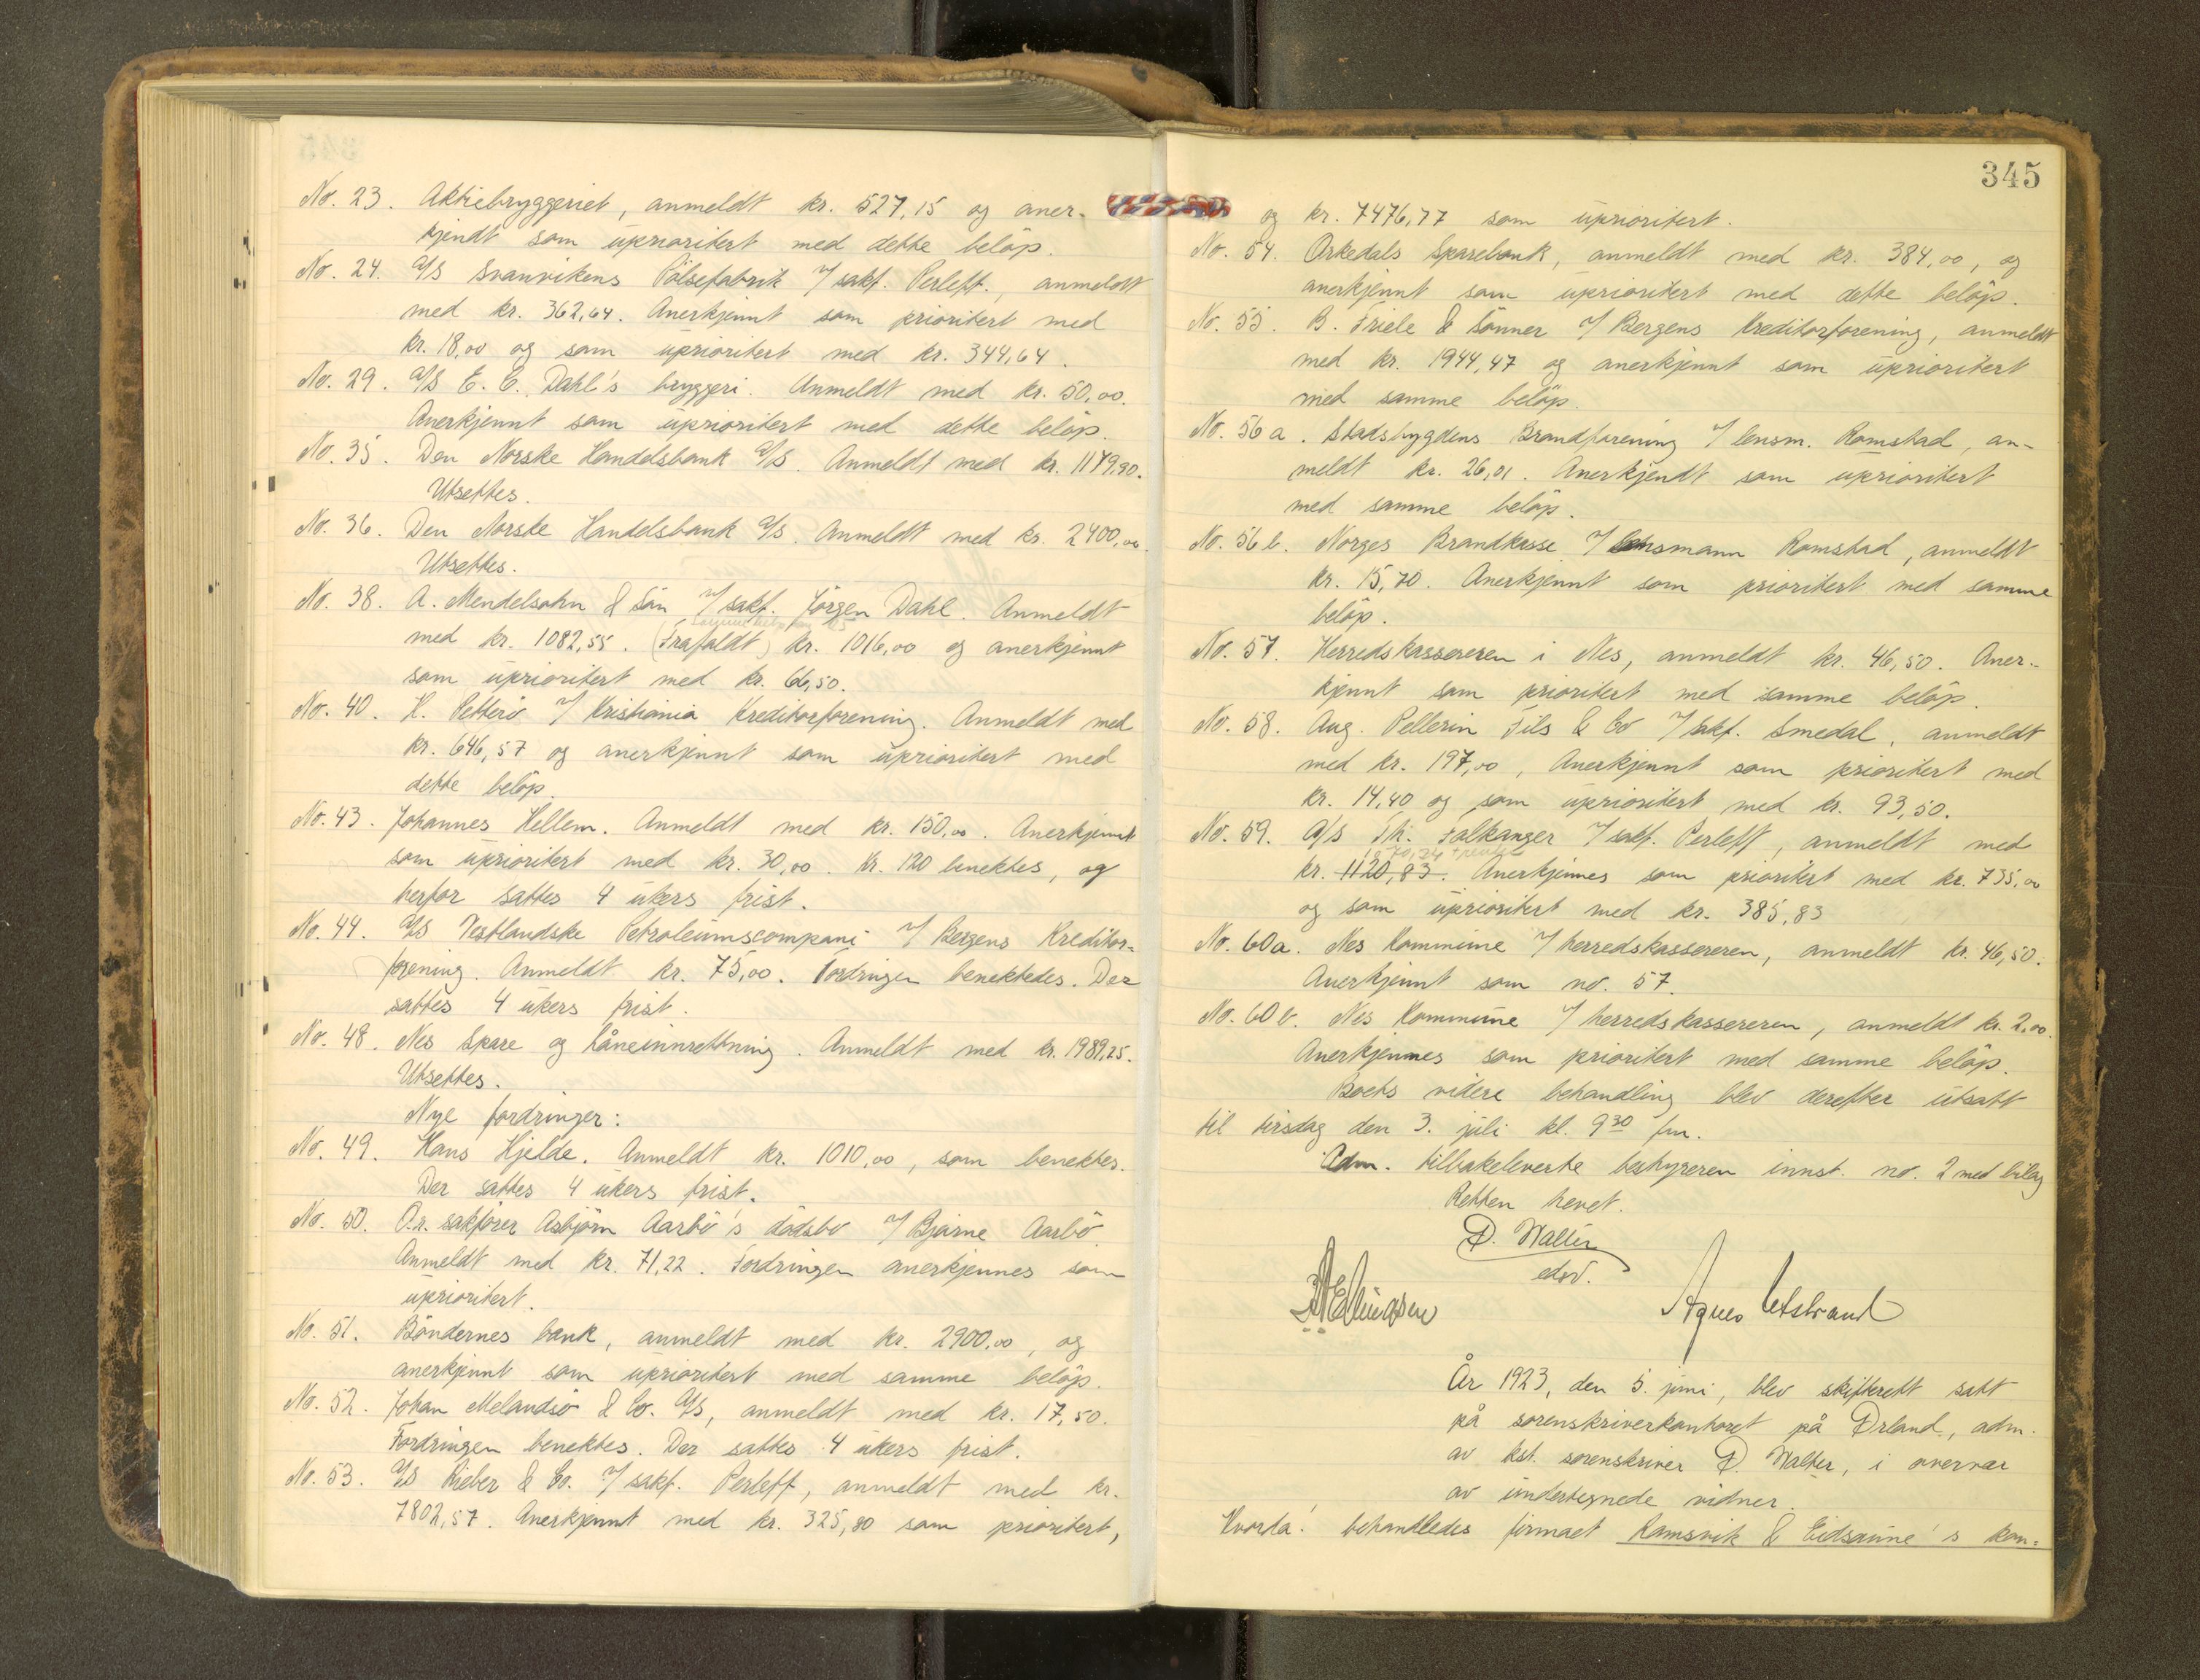 No. 23. Aktiebryggeriet, anmeldt kr. 527,15 og aner-
kjendt som uprioritert med dette beløp.
No. 24. A/S Svanvikens Pölsefabrik v/ sakf. Perleff., anmeldt
med kr. 362,64. Anerkjennt som prioritert med
kr. 18,00 og som uprioritert med kr. 344,64.
No. 29. A/S E. C. Dahl's bryggeri. Anmeldt med kr. 50,00.
Anerkjennt som uprioritert med dette beløp.
No. 35. Den Norske Handelsbank A/S. Anmeldt med kr. 1179,90.
Utsettes.
No. 36. Den Norske Handelsbank A/S. Anmeldt med kr. 2400,00.
Utsettes.
No. 38. A. Mendelsohn & Sön v/ sakf. Jörgen Dahl. Anmeldt
med kr. 1082,55. (Frafaldt) kr. 1016,00 og anerkjennt
som uprioritert med kr. 66,50.
No. 40. H. Petterö v/ Kristiania Kreditorforening. Anmeldt med
kr. 646,57 og anerkjennt som uprioritert med
dette beløp.
No. 43. Johannes Hellem. Anmeldt med kr. 150,00. Anerkjennt
som uprioritert med kr. 30,00. Kr. 120 benektes, og
herfor sattes 4 ukers frist.
No. 44. A/S Vestlandske Petroleumscompani v/ Bergens Kreditor-
forening. Anmeldt kr. 75,00. Fordringen benektedes. Der
sattes 4 ukers frist.
No. 48. Nes Spare og låneinnrettning. Anmeldt med kr. 1989,25.
Utsettes.
Nye fordringer:
No. 49. Hans Hjelde. Anmeldt kr. 1010,00, som benektes.
Der sattes 4 ukers frist.
No. 50. O.r. sakfører Asbjörn Aarbö's dödsbo v/ Bjarne Aarbö.
Anmeldt med kr. 71,22. Fordringen anerkjennes som
uprioritert.
No. 51. Böndernes bank, anmeldt med kr. 2900,00, og
anerkjennt som uprioritert med samme beløp.
No. 52. Johan Melandsö & Co. A/S, anmeldt med kr. 17,50.
Fordringen benektes. Der sattes 4 ukers frist.
No. 53. A/S Rieber & Co. v/ sakf. Perleff, anmeldt med kr.
7802,57. Anerkjennt med kr. 325,80 som prioritert,
345
og kr. 7476,77 som uprioritert.
No. 54. Orkedals Sparebank, anmeldt med kr. 384,00, og
anerkjennt som uprioritert med dette beløp.
No. 55. B. Friele & Sönner v/ Bergens Kreditorforening, anmeldt
med kr. 1944,47 og anerkjennt som uprioritert
med samme beløp.
No. 56 a. Stadsbygdens Brandforening v/ lensm. Ramstad, an-
meldt kr. 26,01. Anerkjendt som uprioritert
med samme beløp.
No. 56 b. Norges Brandkasse v/ lensmann Ramstad, anmeldt
kr. 15,70. Anerkjennt som prioritert med samme
beløp.
No. 57. Herredskassereren i Nes, anmeldt kr. 46,50. Aner-
kjennt som prioritert med samme beløp.
No. 58. Aug. Pellerin Fils & Co v/ sakf. Smedal, anmeldt
med kr. 197,00, Anerkjennt som prioritert med
kr. 14,40 og som uprioritert med kr. 93,50.
No. 59. A/S Th. Falkanger v/ sakf. Perleff, anmeldt med
kr. 1120,83. Anerkjennes som prioritert med kr. 735,00
og som uprioritert med kr. 385,83
No. 60 a. Nes Kommune v/ herredskassereren, anmeldt kr. 46,50.
Anerkjennt som no. 57.
No. 60 b. Nes Kommune v/ herredskassereren, anmeldt kr. 2,00.
Anerkjennes som prioritert med samme beløp.
Boets videre behandling blev derefter utsatt
til tirsdag den 3. juli kl. 9 30 fm.
Adm. tilbakeleverte bestyreren innst. no. 2 med bilag
Retten hevet.
D. Walter
edsv.
Agnes Utstrand
År 1923, den 5. juni, blev skifterett satt
på sorenskriverkontoret på Ørland, adm.
av kst. sorenskriver D. Walter, i overvær
av undertegnede vidner.
Hvorda! behandledes firmaet Ramsvik & Eidsaune's kon-